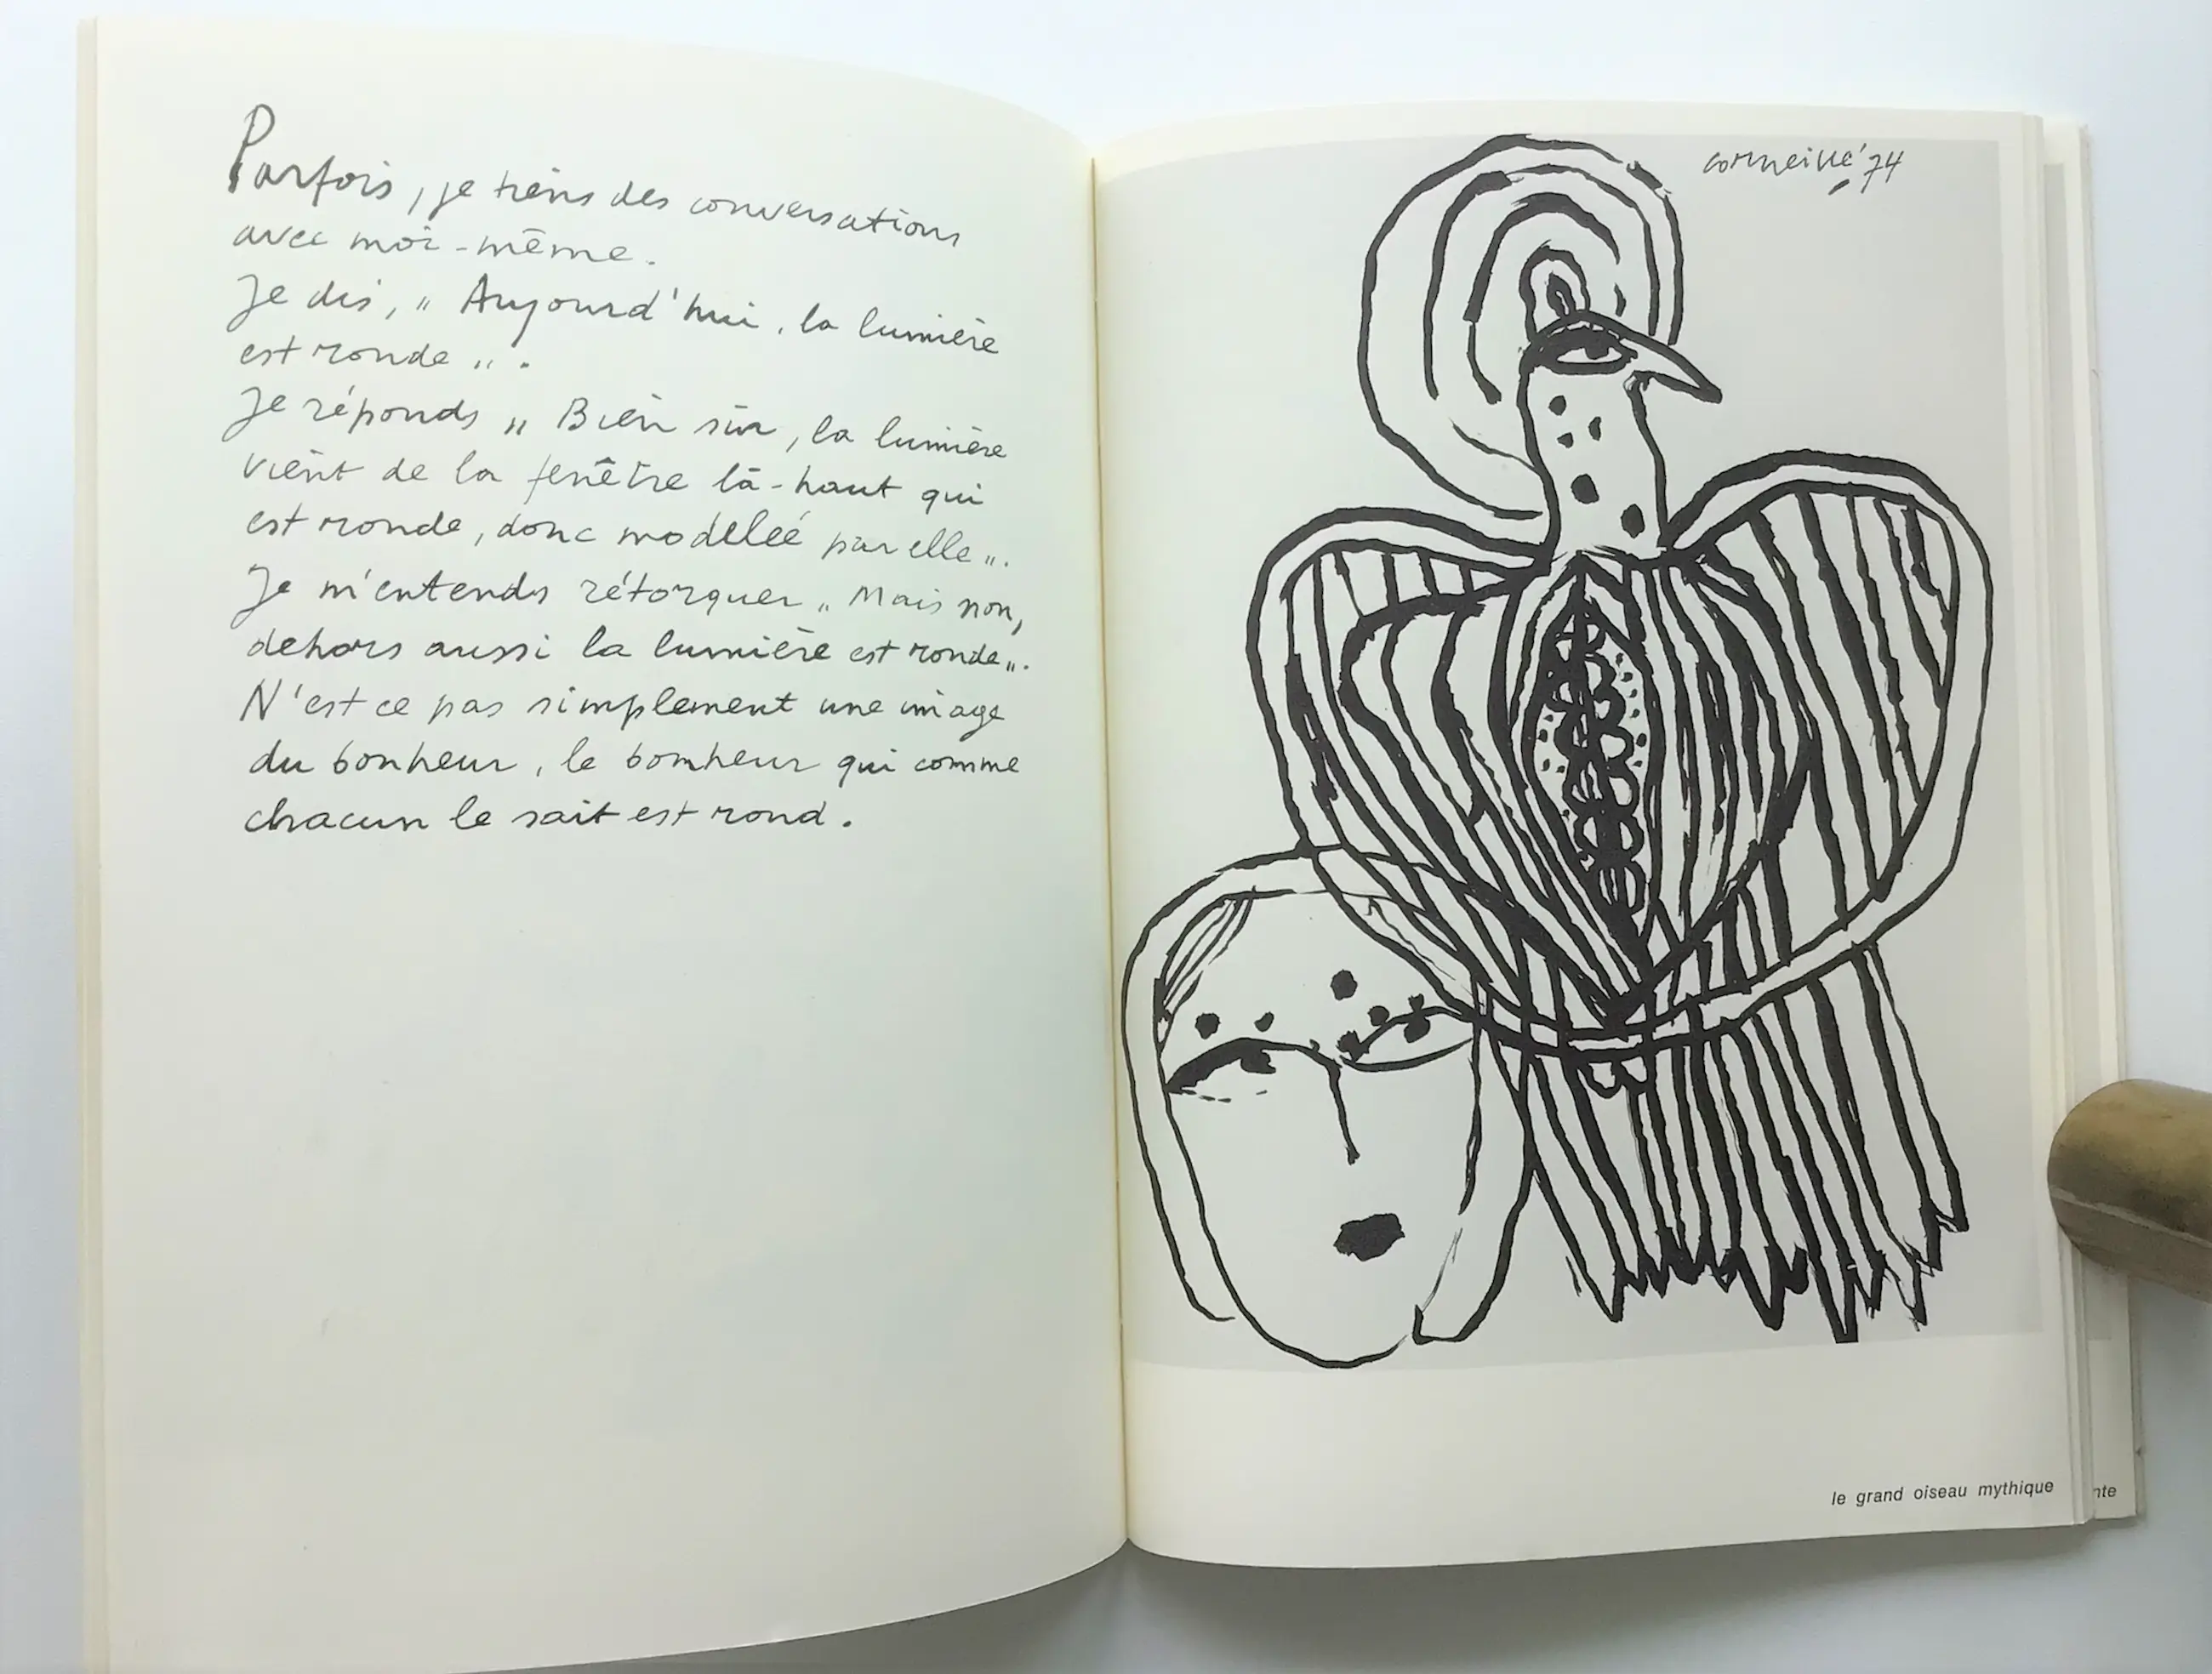 Parfois, je tiens des conversations
avec moi-même.
Je dis, „ Aujourd'hui, la lumière
est ronde „.
Je réponds „ Bien sûr, la lumière
vient de la fenêtre là-haut qui
est ronde, donc modelée par elle „.
Je m'entends rétorquer „ Mais non,
dehors aussi la lumière est ronde „.
N'est ce pas simplement une image
du bonheur, le bonheur qui comme
chacun le sait est rond.
corneille '74
le grand oiseau mythique
nte